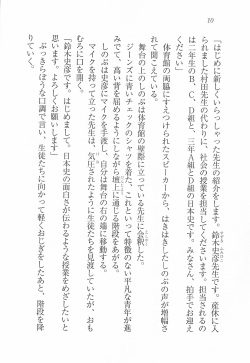 10
「はじめに新しくいらっしゃった先生の紹介をします。鈴木史彦先生です。産休に入
られました村田先生の代わりに、社会の授業を担当してくださいます。担当されるの
は二年生のB、C、D組と、三年A組とD組の日本史です。みなさん、拍手でお迎え
ください」
体育館の両脇にすえつけられたスピーカーから、はきはきしたしのぶの声が増幅さ
れて聞こえている。
舞台の上のしのぶは体育館の壁際に立っている先生に会釈した。
ジーンズに青いチェックのシャツを着た、これといって特徴のない平凡な青年が進
みで、高い背を屈めるようにしながら壇上に通じる階段をあがる。
しのぶは史彦にマイクを手渡し、自分は舞台の右の端に移動する。
マイクを持って立った先生は、気圧されたように生徒たちを見渡していたが、おも
むろに口を開く。
「鈴木史彦です。はじめまして。日本史の面白さが伝わるような授業をめざしたいと
思います。よろしくお願いします」
ぶっきらぼうな口調で言い、生徒たちに向かって軽くおじぎをしたあと、階段を降
りていく。